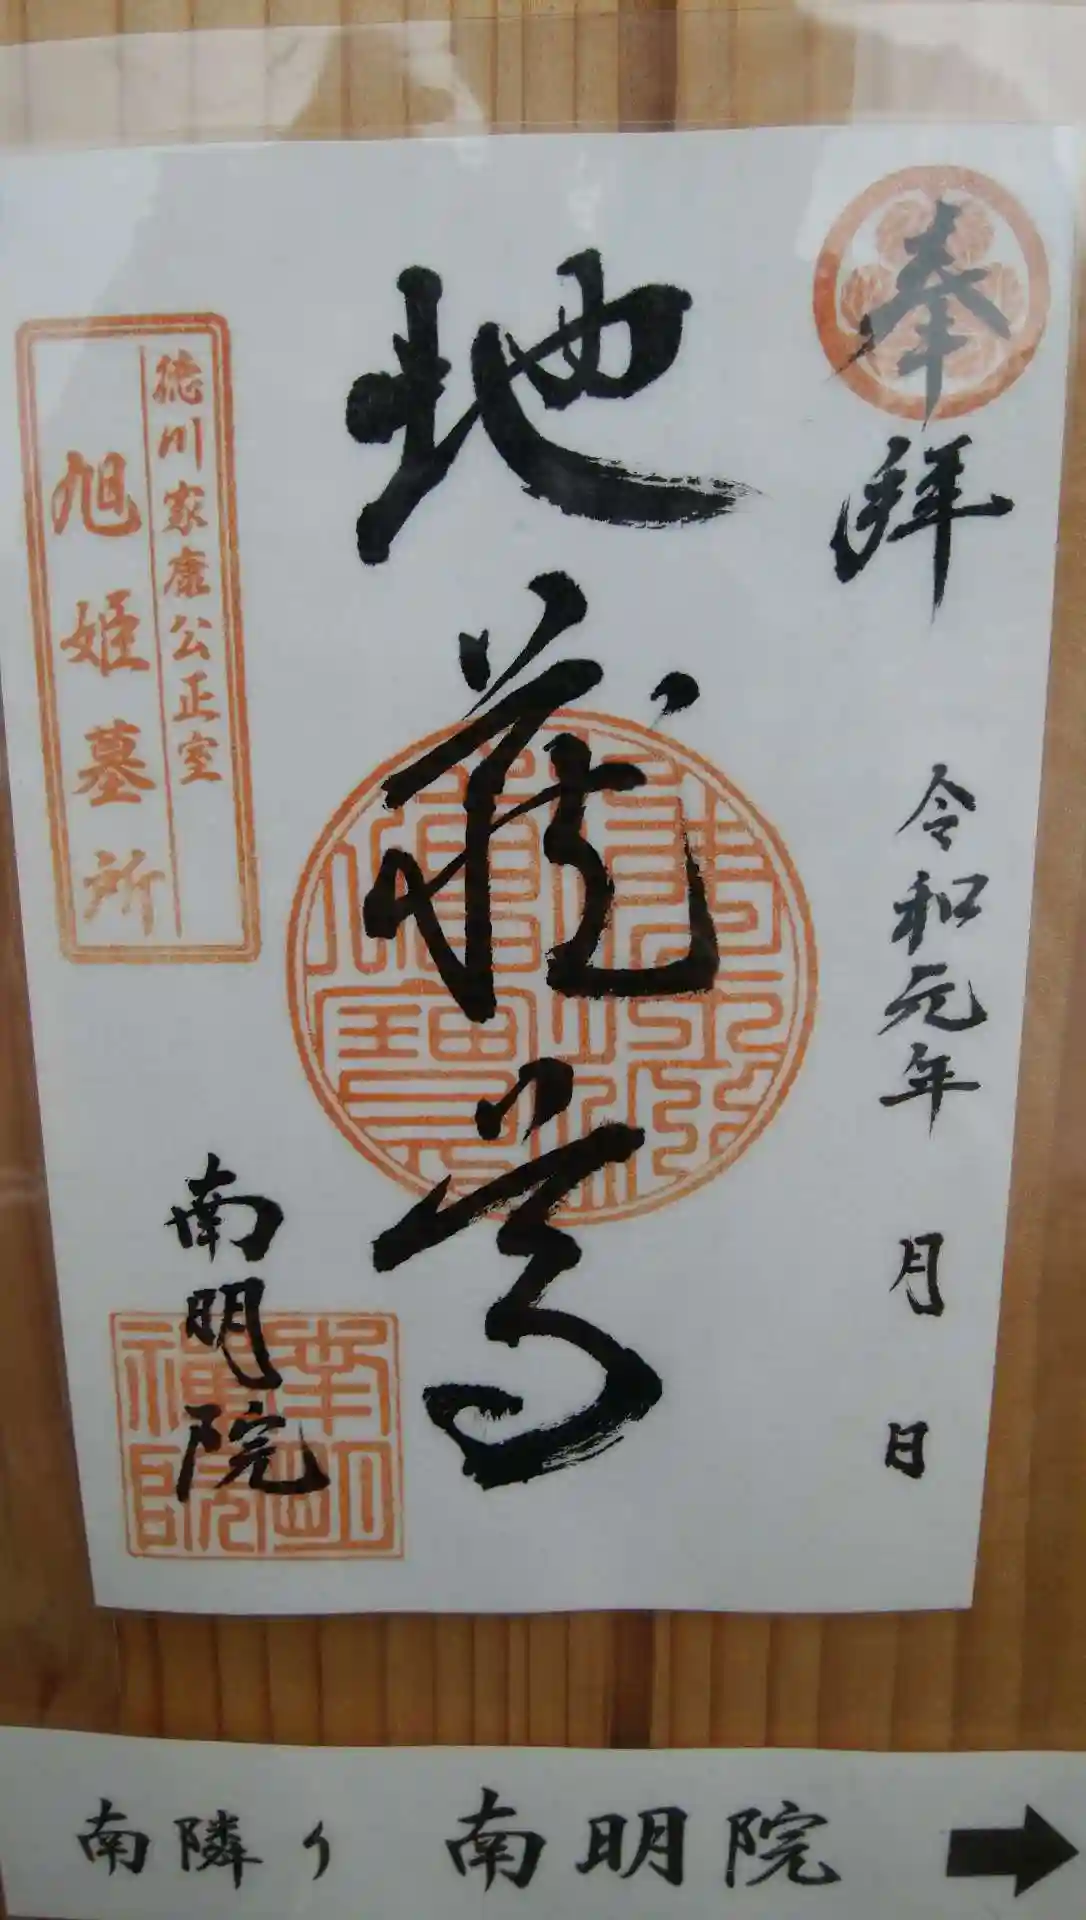 奉拝
令和元年 月 日
地蔵尊
徳川家康公正室
旭姫墓所
南明院
南明禅院
南隣り 南明院